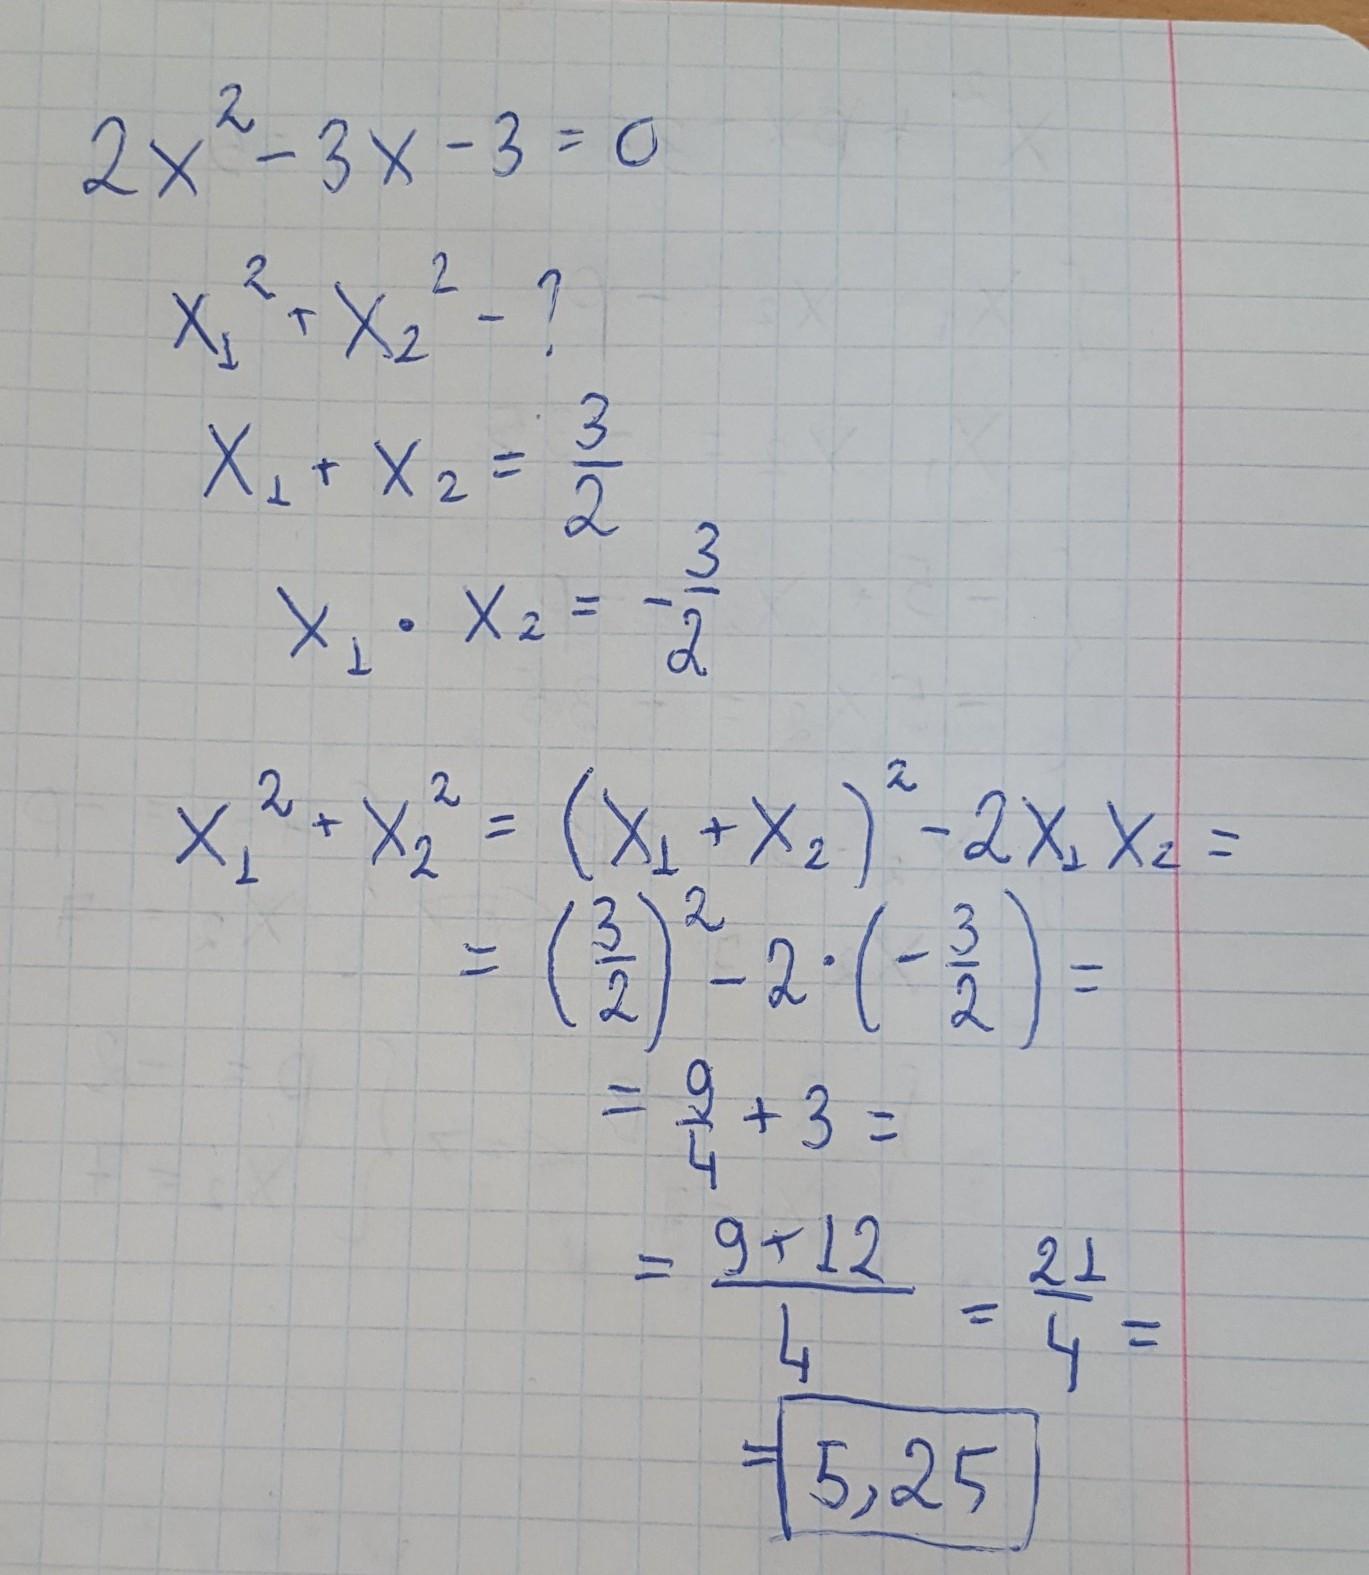 2x² - 3x - 3 = 0
x₁² + x₂² - ?
x₁ + x₂ = 3/2
x₁ · x₂ = -3/2
x₁² + x₂² = (x₁ + x₂)² - 2x₁x₂ =
= (3/2)² - 2 · (-3/2) =
= 9/4 + 3 =
= (9+12)/4 = 21/4 =
= 5,25